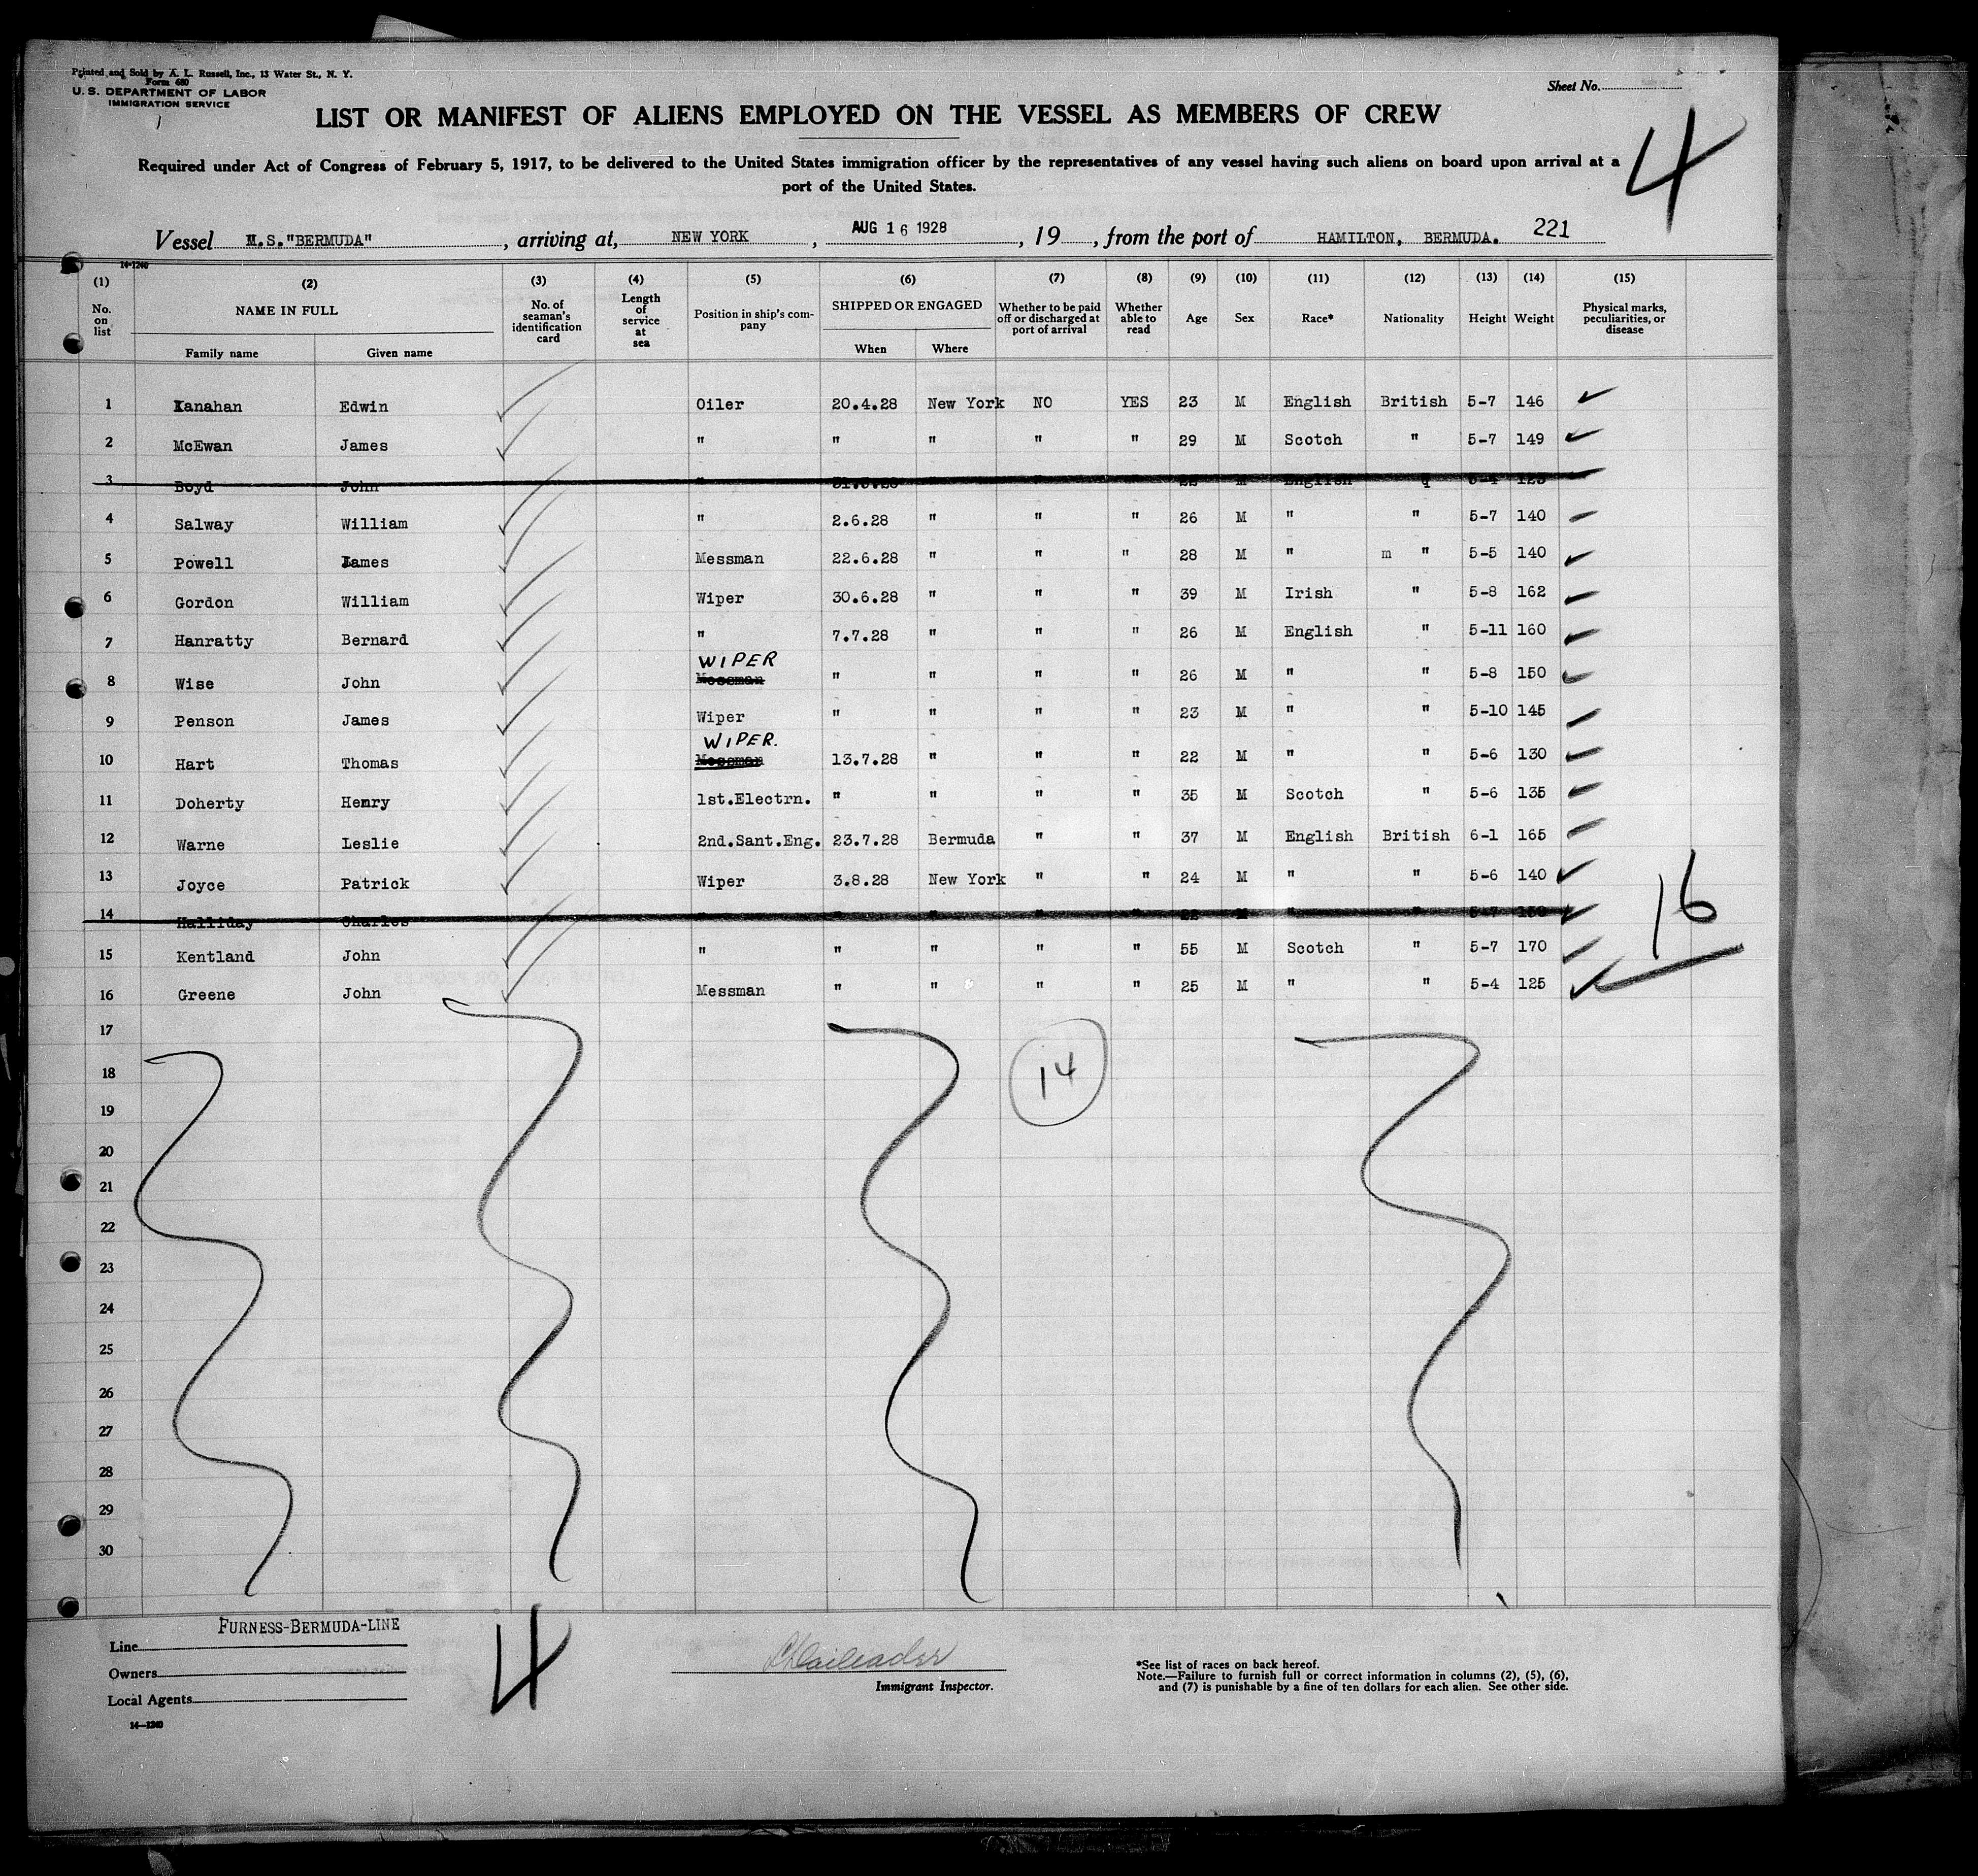 Printed and Sold by A. L. Russell, Inc., 13 Water St., N. Y.
Form 680
U. S. DEPARTMENT OF LABOR
IMMIGRATION SERVICE
Sheet No.
4
LIST OR MANIFEST OF ALIENS EMPLOYED ON THE VESSEL AS MEMBERS OF CREW
Required under Act of Congress of February 5, 1917, to be delivered to the United States immigration officer by the representatives of any vessel having such aliens on board upon arrival at a
port of the United States.
Vessel M.S."BERMUDA" , arriving at, NEW YORK , AUG 16 1928 , 19 , from the port of HAMILTON, BERMUDA. 221
14-1240
(1) (2) (3) (4) (5) (6) (7) (8) (9) (10) (11) (12) (13) (14) (15)
No. on list NAME IN FULL Family name Given name No. of seaman's identification card Length of service at sea Position in ship's company SHIPPED OR ENGAGED When Where Whether to be paid off or discharged at port of arrival Whether able to read Age Sex Race* Nationality Height Weight Physical marks, peculiarities, or disease
1 Kanahan Edwin Oiler 20.4.28 New York NO YES 23 M English British 5-7 146
2 McEwan James " " " " " 29 M Scotch " 5-7 149
3 Boyd John " 31.5.28 " " " M English 5-4 125
4 Salway William " 2.6.28 " " " 26 M " " 5-7 140
5 Powell James Messman 22.6.28 " " " 28 M " m " 5-5 140
6 Gordon William Wiper 30.6.28 " " " 39 M Irish " 5-8 162
7 Hanratty Bernard " 7.7.28 " " " 26 M English " 5-11 160
WIPER
8 Wise John Messman " " " " 26 M " " 5-8 150
9 Penson James Wiper " " " " 23 M " " 5-10 145
WIPER.
10 Hart Thomas Messman 13.7.28 " " " 22 M " " 5-6 130
11 Doherty Henry 1st.Electrn. " " " " 35 M Scotch " 5-6 135
12 Warne Leslie 2nd.Sant.Eng. 23.7.28 Bermuda " " 37 M English British 6-1 165
13 Joyce Patrick Wiper 3.8.28 New York " " 24 M " " 5-6 140
14 Halliday Charles " " " " " 22 M " " 5-7 150
16
15 Kentland John " " " " " 55 M Scotch " 5-7 170
16 Greene John Messman " " " " 25 M " " 5-4 125
17
14
18
19
20
21
22
23
24
25
26
27
28
29
30
FURNESS-BERMUDA-LINE
Line
Owners
Local Agents
14—1240
4
Immigrant Inspector.
*See list of races on back hereof.
Note.—Failure to furnish full or correct information in columns (2), (5), (6),
and (7) is punishable by a fine of ten dollars for each alien. See other side.